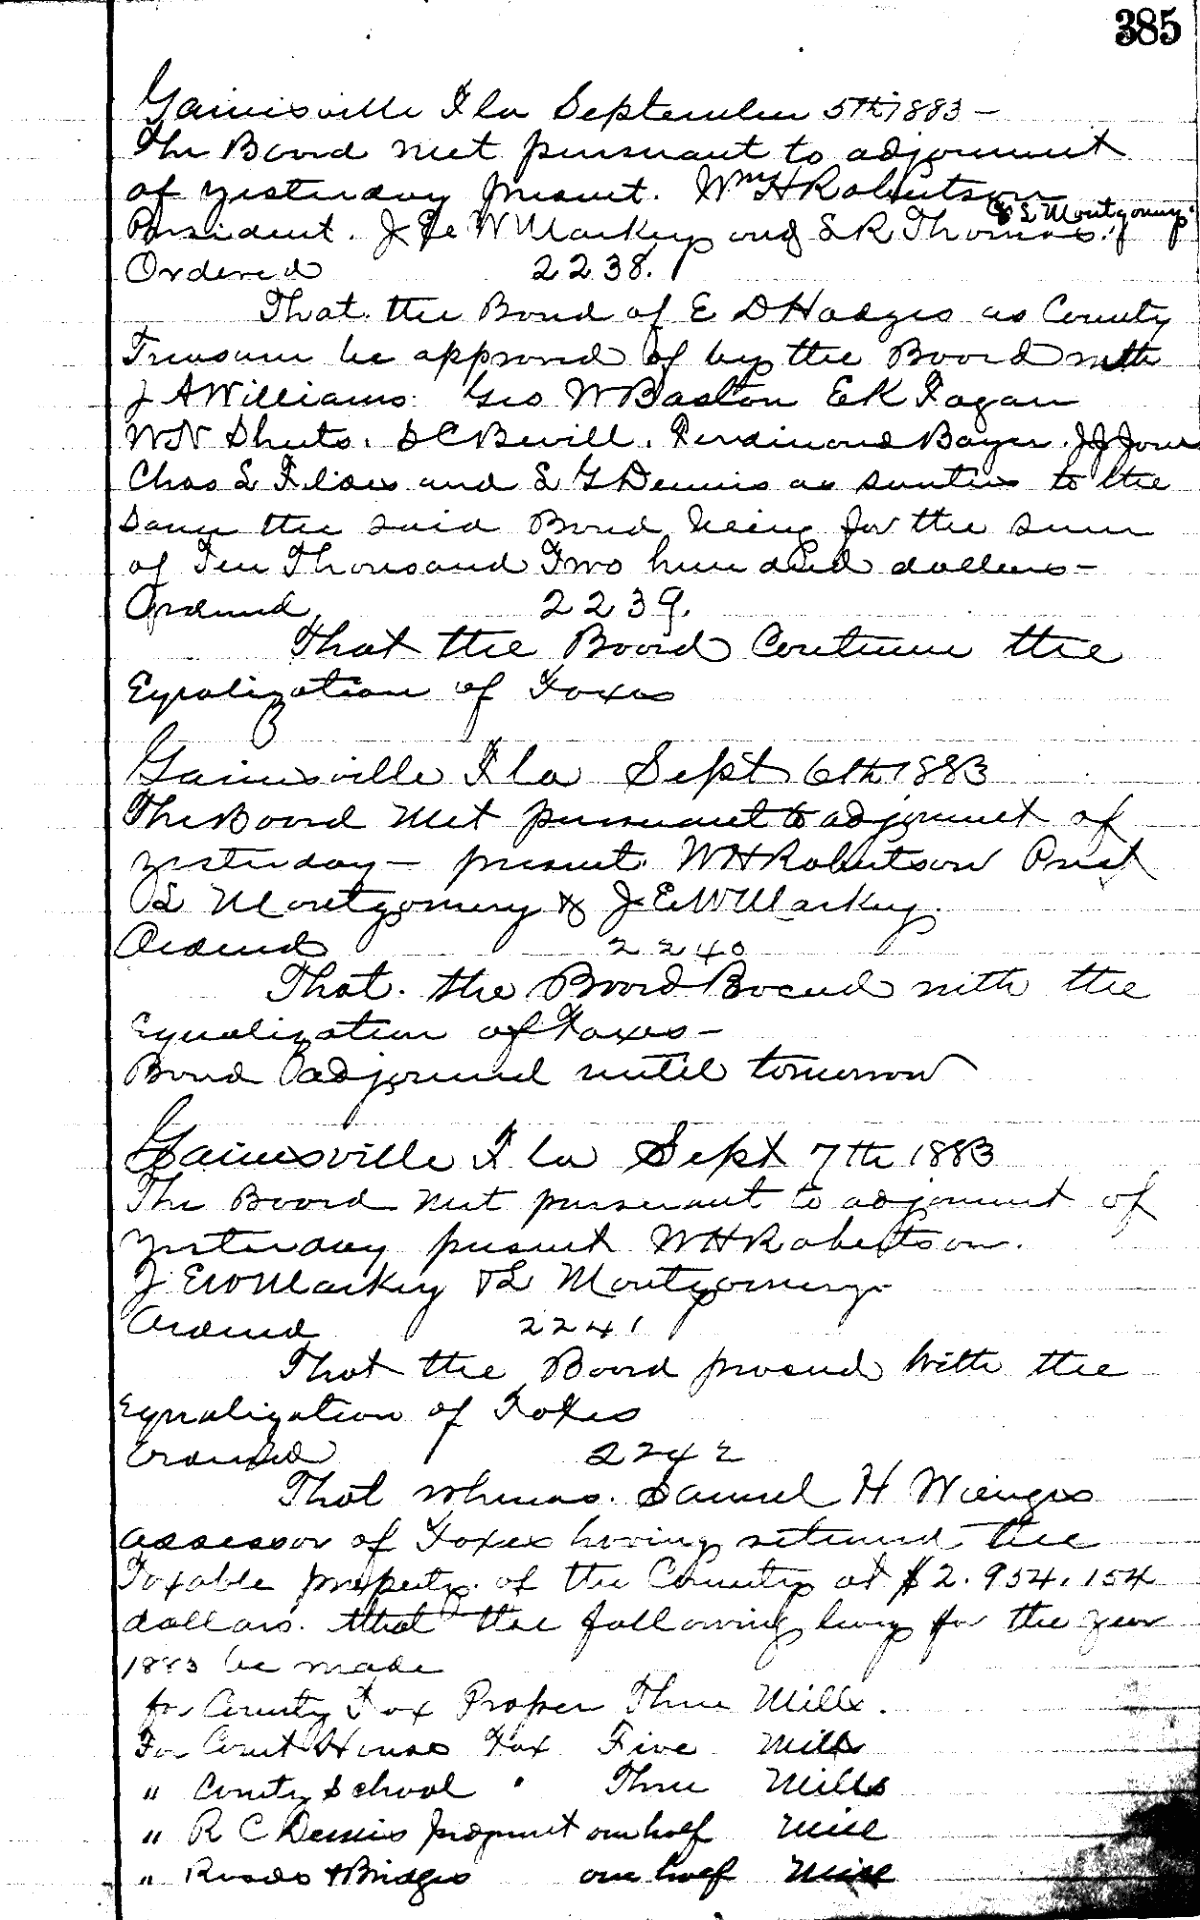 385
Gainesville Fla September 5th 1883 -
The Board met pursuant to adjournment
of yesterday present. Wm H Robertson
& L Montgomery.
President. J E W Markey and S R Thomas.
Ordered 2238.
That the Bond of E D Hodges as County
Treasurer be approved of by the Board with
J A Williams. Geo W Baston E K Fagan
W N Sheets. S C Bevill. Ferdinand Bayer. J J Jones
Chas S Flider and L G Dennis as sureties to the
Same the said Bond being for the sum
of Ten Thousand Two hundred dollars -
Ordered 2239.
That the Board Continue the
Equalization of Taxes
Gainesville Fla Sept 6th 1883
The Board Met pursuant to adjournment of
yesterday - present. W H Robertson Prest
L Montgomery & J E W Markey.
Ordered 2240
That. the Board Proceed with the
Equalization of Taxes -
Board adjourned until tomorrow
Gainesville Fla Sept 7th 1883
The Board met pursuant to adjournment of
Yesterday present W H Robertson.
J E W Markey & L Montgomery.
Ordered 2241
That the Board proceed with the
Equalization of Taxes
Ordered 2242
That whereas. Samuel H Wienges
assessor of Taxes having returned the
Taxable property of the County at $2.954.154
dollars. that the following levy for the year
1883 be made
for County Tax Proper Three Mills.
For Court House Tax Five Mills
" County School " Three Mills
" R C Dennis Judgment one half Mill
" Roads & Bridges one half Mill